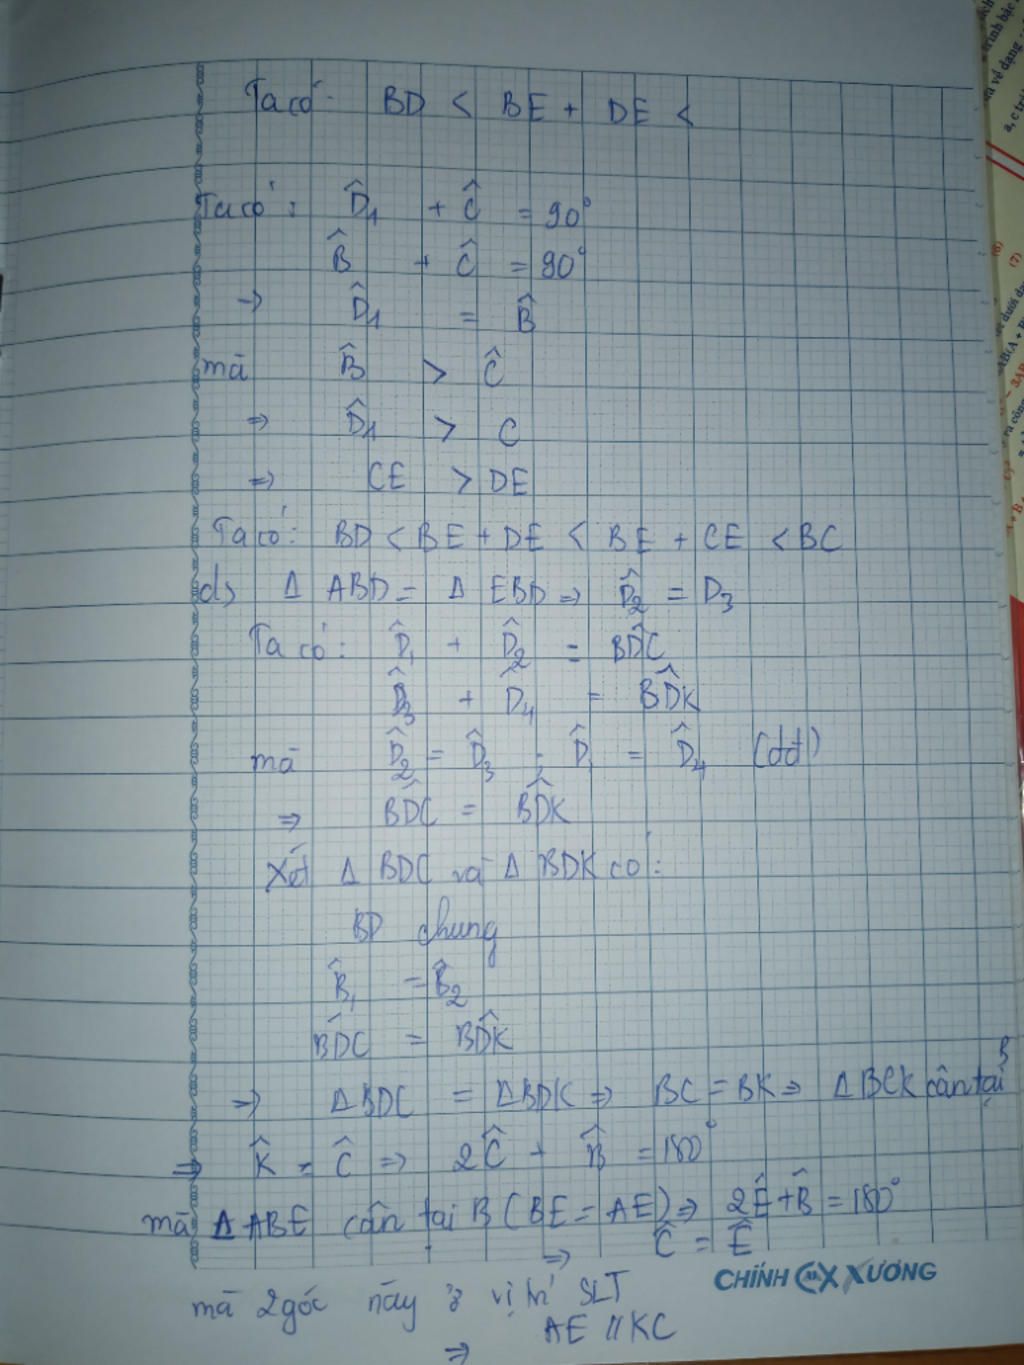 Ta có: BD < BE + DE <
Ta có: D̂₁ + Ĉ = 90°
B̂ + Ĉ = 90°
→ D̂₁ = B̂
mà B̂ > Ĉ
⇒ D̂₁ > C
⇒ CE > DE
Ta có: BD < BE + DE < BE + CE < BC
d) Δ ABD = Δ EBD ⇒ D̂₂ = D₃
Ta có: D̂₁ + D̂₂ = BD̂C
D̂₃ + D̂₄ = BD̂K
mà D̂₂ = D̂₃ ; D̂₁ = D̂₄ (đđ)
⇒ BD̂C = BD̂K
Xét Δ BDC và Δ BDK có:
BD chung
B̂₁ = B̂₂
BD̂C = BD̂K
⇒ ΔBDC = ΔBDK ⇒ BC = BK ⇒ ΔBCK cân tại B
⇒ K̂ = Ĉ ⇒ 2Ĉ + B̂ = 180°
mà Δ ABE cân tại B (BE = AE) ⇒ 2Ê + B̂ = 180°
⇒ Ĉ = Ê
CHÍNH XƯƠNG
mà 2 góc này ở vị trí SLT
⇒ AE // KC